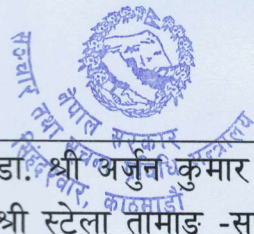 नेपाल सरकार
सञ्चार तथा सूचना प्रविधि मन्त्रालय
सिंहदरबार, काठमाडौं
डा. श्री अर्जुन कुमार
श्री स्टेला तामाङ -स